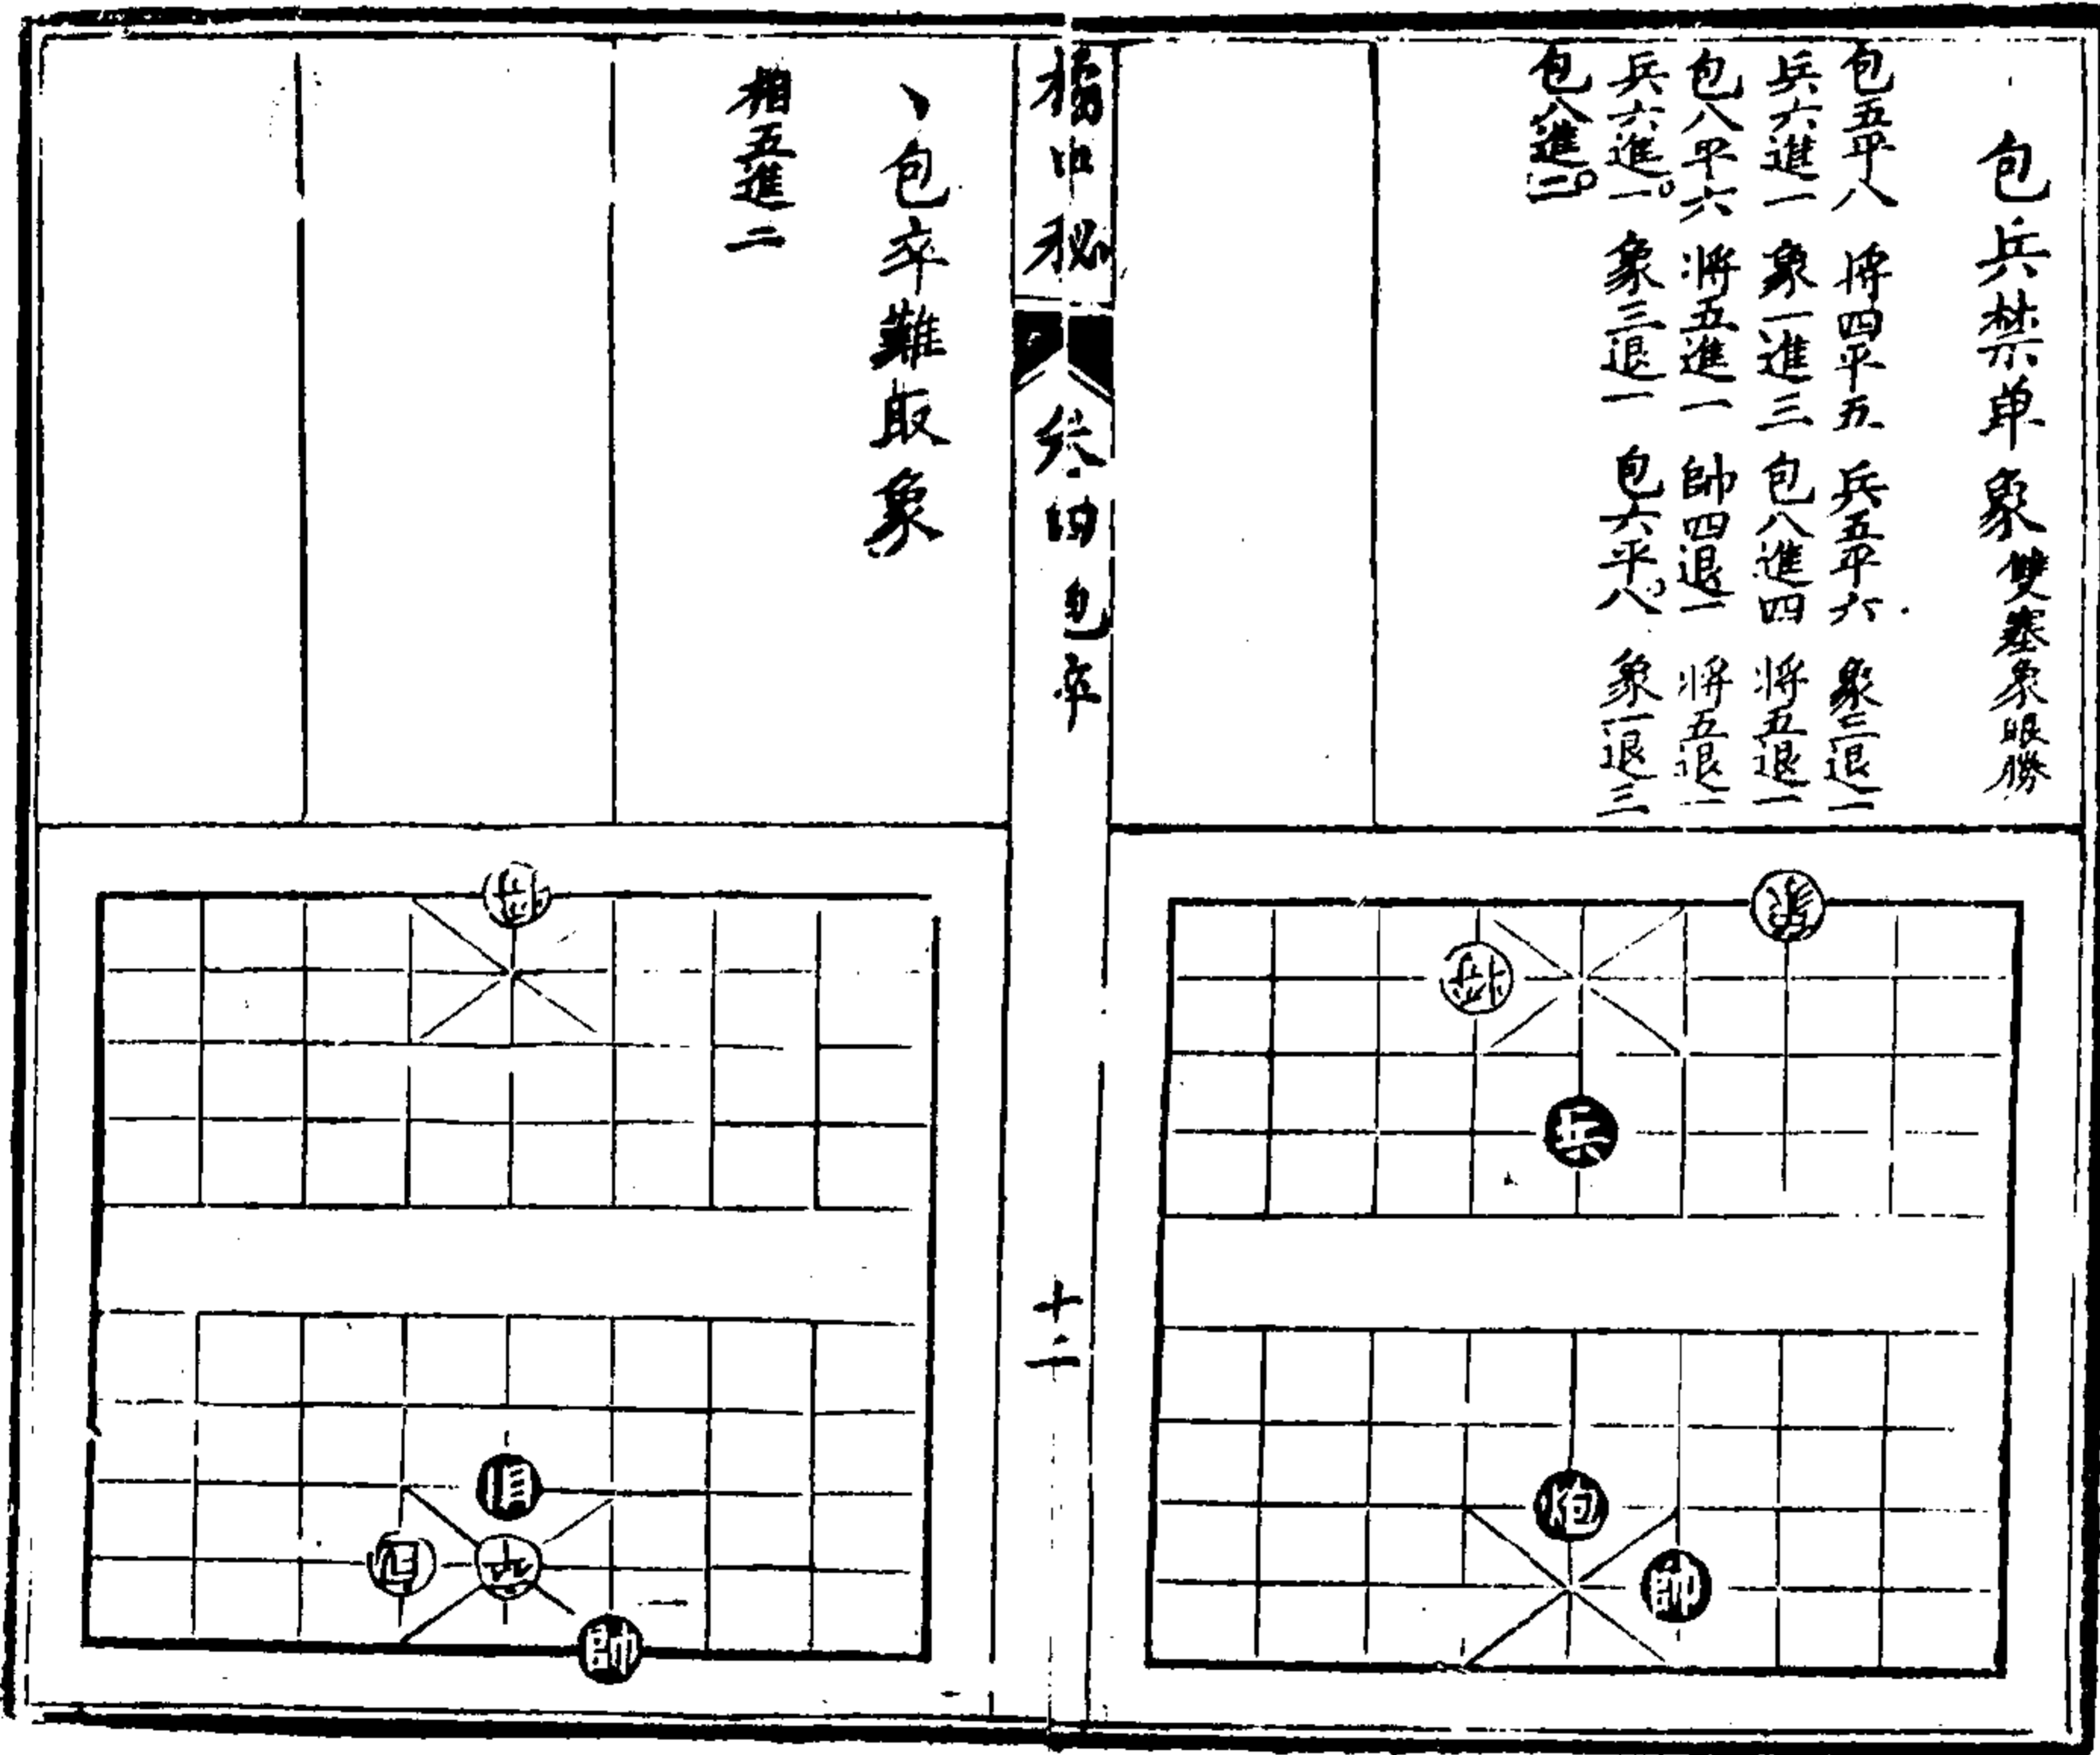 包兵禁单象 雙塞象眼勝
包五平八 將四平五 兵五平六 象三退一
兵六進一 象一進三 包八進四 將五退一
包八平六 將五進一 帥四退一 將五退一
兵六進一 象三退一 包六平八 象一退三
包八進二
象
將
兵
炮
帥
橘中秘 卷四 包卒
十二
包卒難取象
相五進二
將
相
包 卒
帥